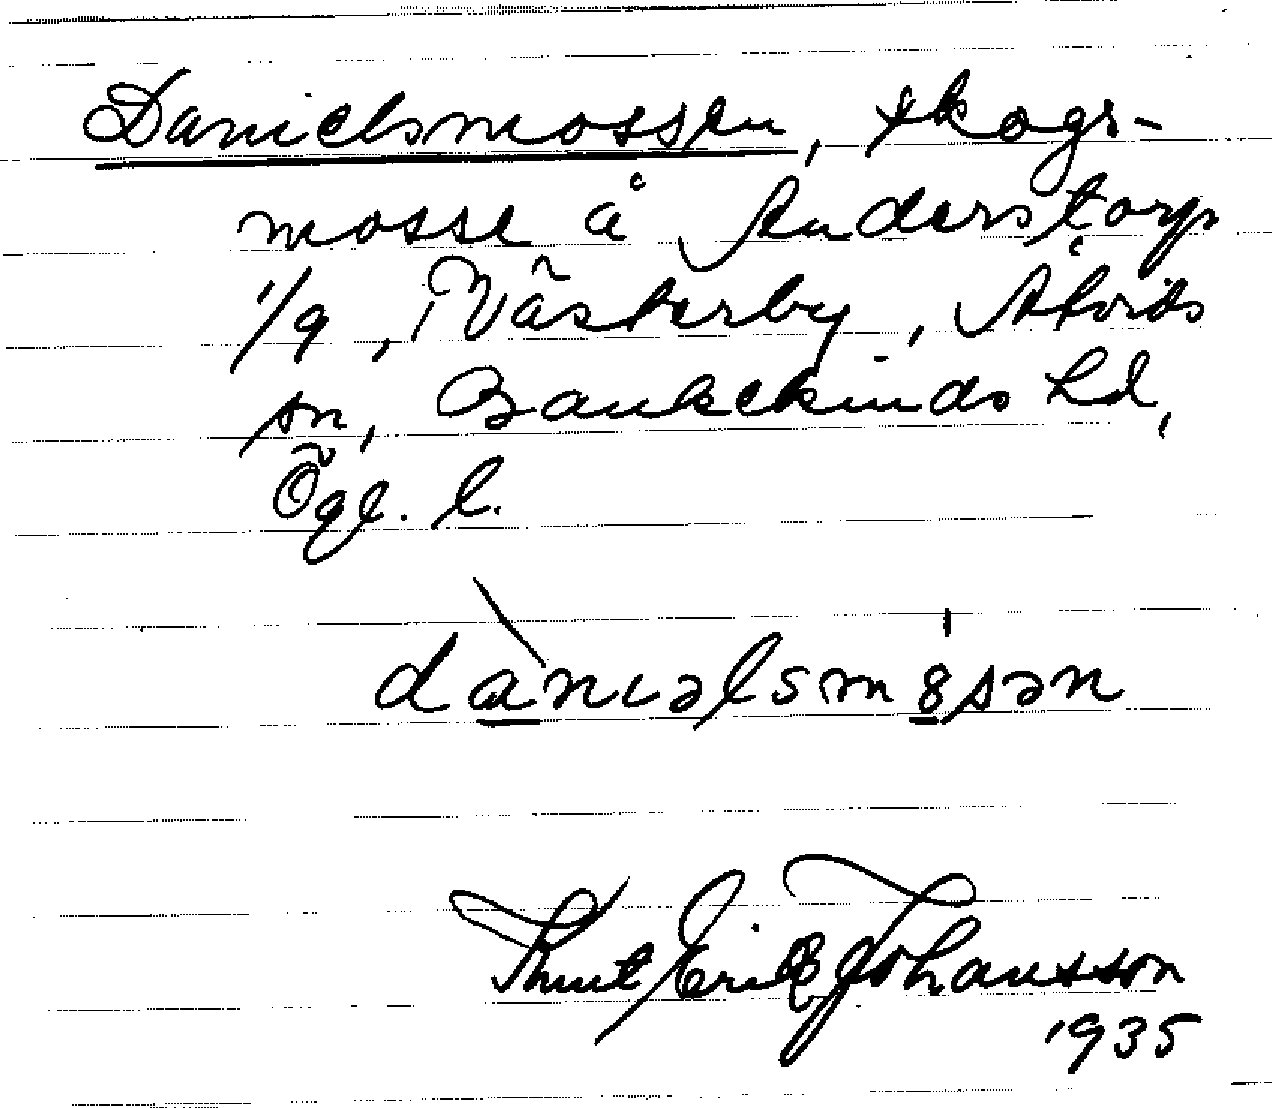 Danielsmossen, skogs-
mosse å Anderstorp
1/9, Västerby, Åtvids
sn, Bankekinds hd,
Ögl. l.
dànɩəlsm8sən
Knut Erik Johansson
1935